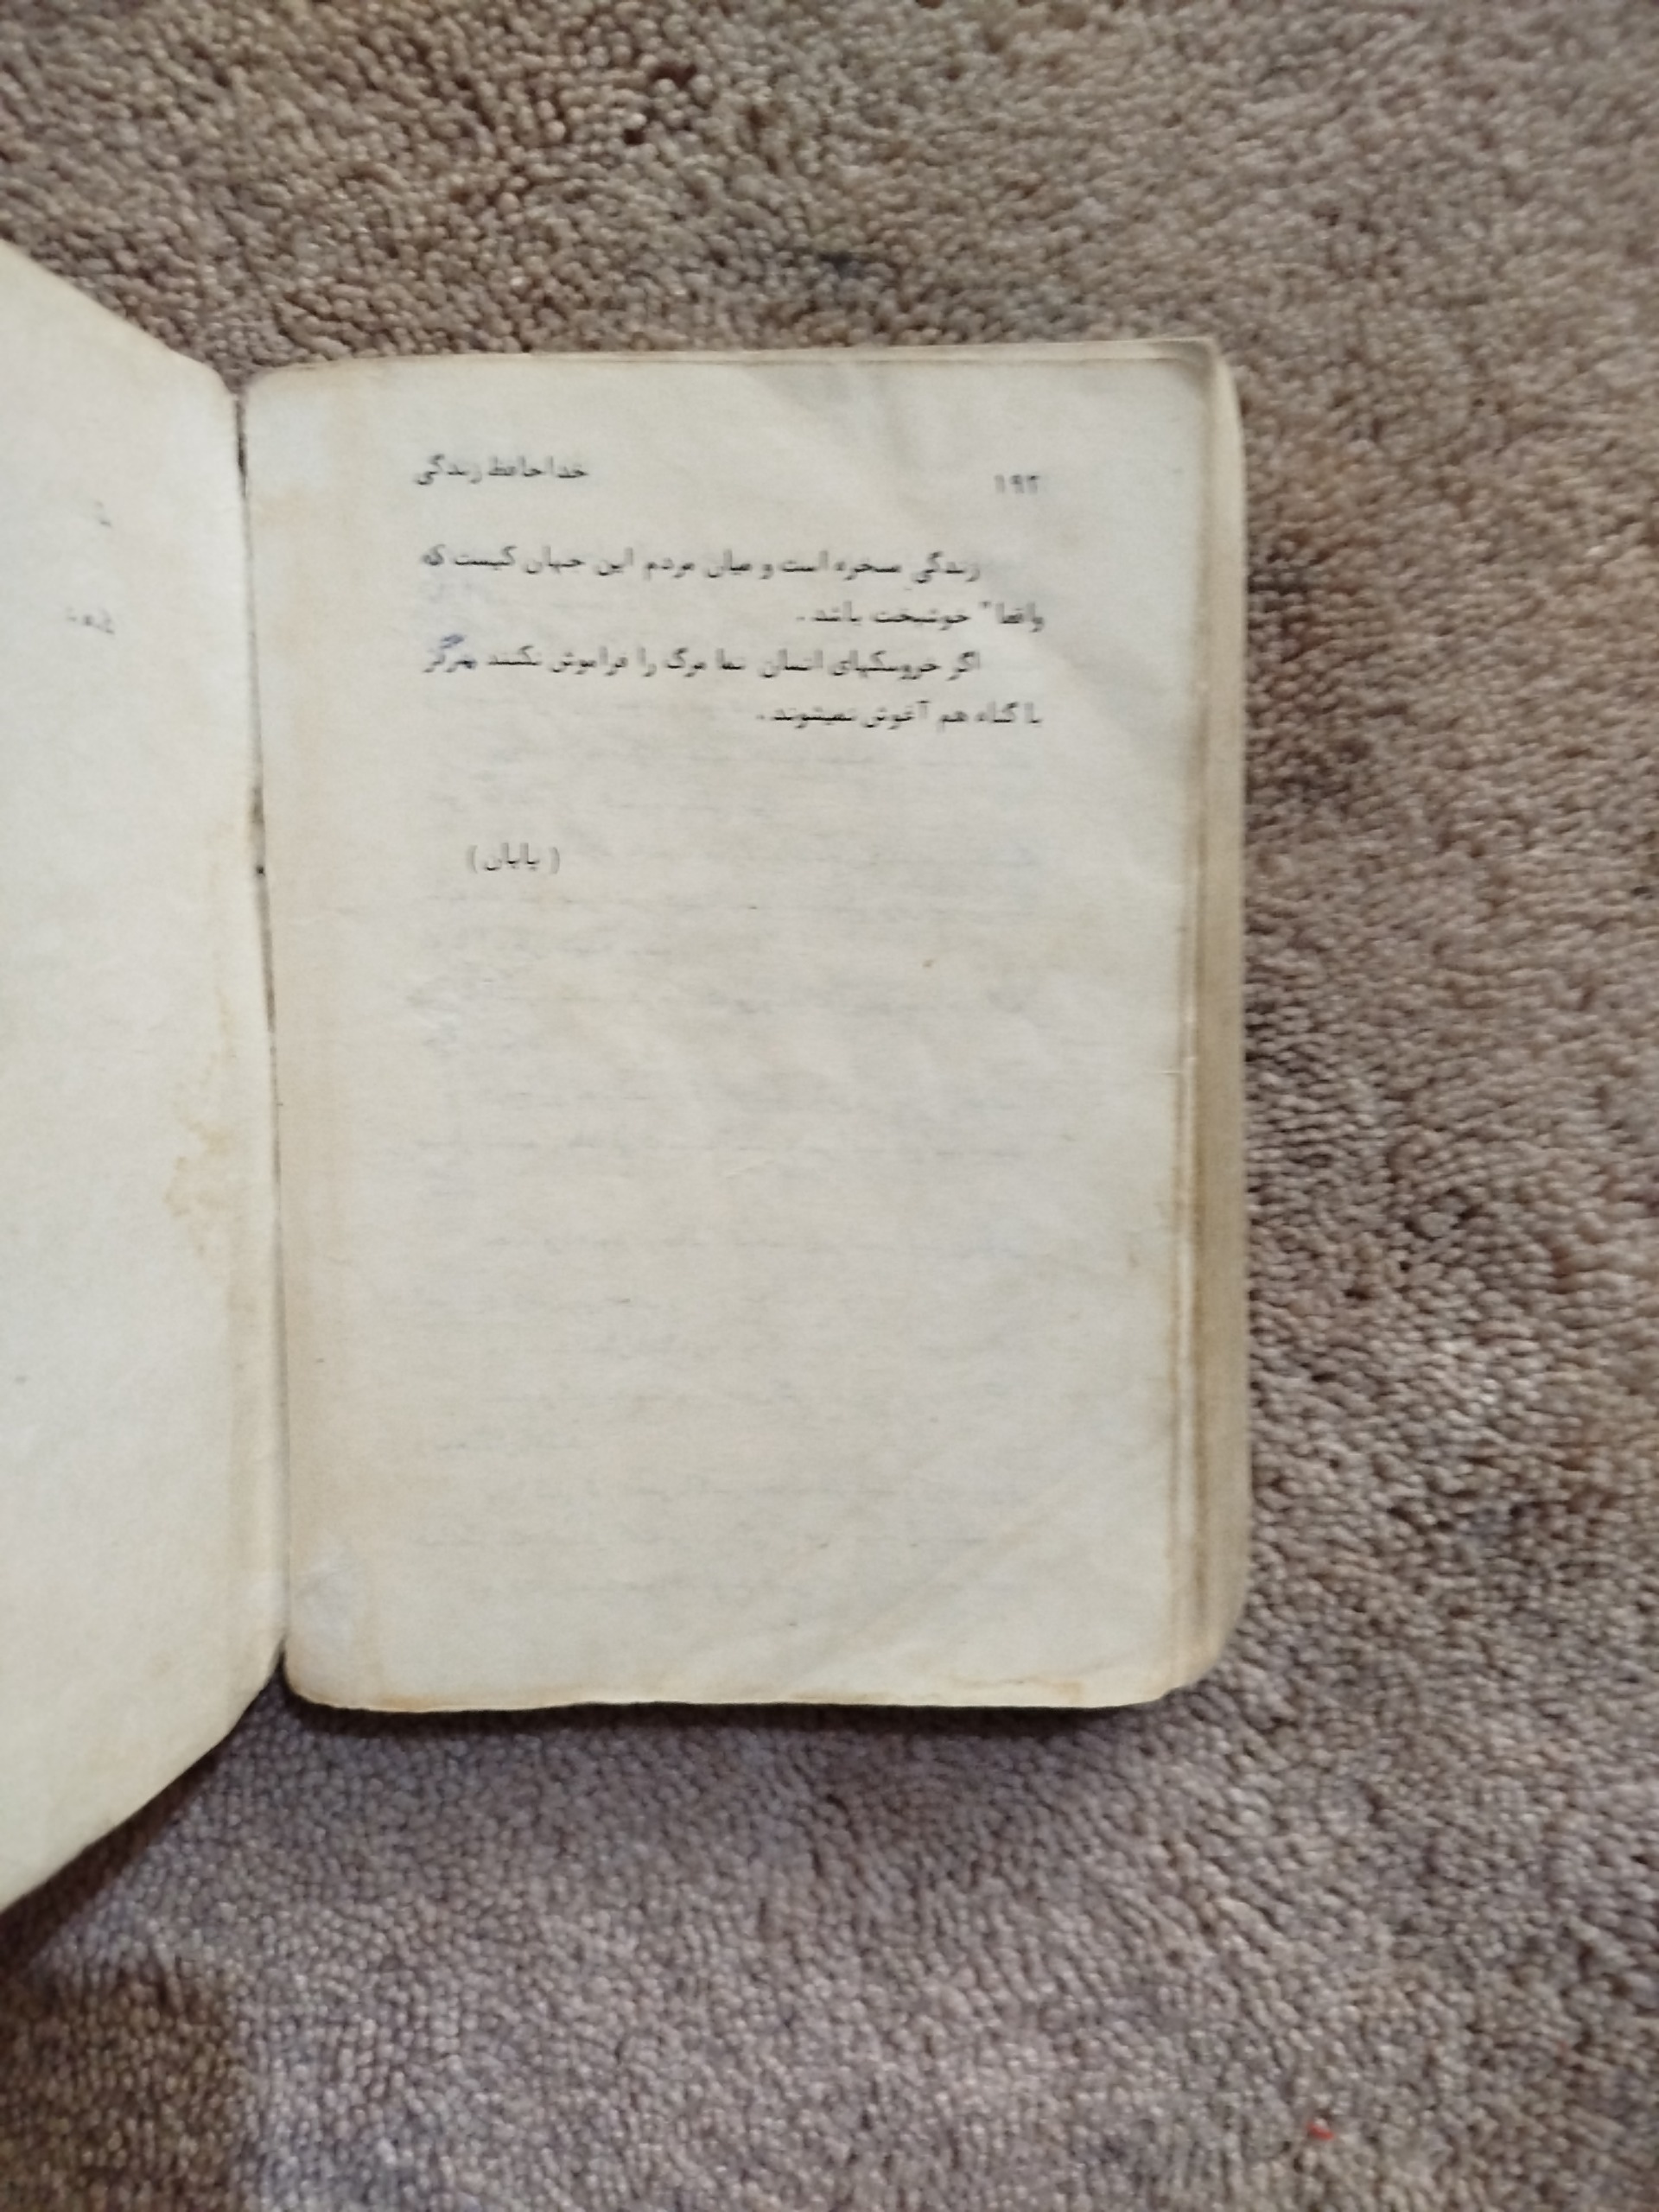 ۱۹۲ خداحافظ زندگی
زندگی مسخره است و میان مردم این جهان کیست که
واقعا" خوشبخت باشد .
اگر عروسکهای انسان نما مرگ را فراموش نکنند هرگز
با گناه هم آغوش نمیشوند .
( پایان )